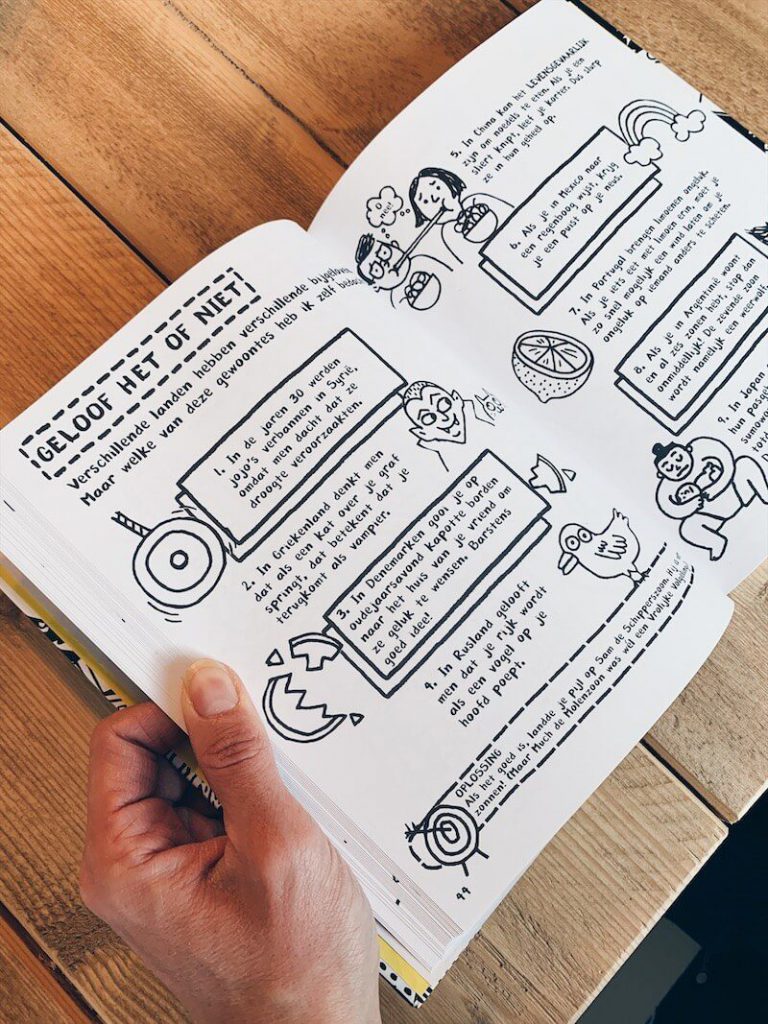 GELOOF HET OF NIET
Verschillende landen hebben verschillende bijgeloven
Maar welke van deze gewoontes heb ik zelf
1. In de jaren 30 werden
jojo's verbannen in Syrië,
omdat men dacht dat ze
droogte veroorzaakten.
2. In Griekenland denkt men
dat als een kat over je graf
springt, dat betekent dat je
terugkomt als vampier.
3. In Denemarken gooi je op
oudejaarsavond kapotte borden
naar het huis van je vriend om
ze geluk te wensen. Barstens
goed idee!
4. In Rusland gelooft
men dat je rijk wordt
als een vogel op je
hoofd poept.
OPLOSSING
Als het goed is, landde je pijl op Sam de Schipperszoon. Hij is
zonnen! (Maar Much de Molenzoon was wel een vrolijke
44
5. In China kan het LEVENSGEVAARLIJK
zijn om noedels te eten. Als je een
sliert knipt, leef je korter. Dus slurp
ze in hun geheel op.
O
nee!
6. Als je in Mexico naar
een regenboog wijst, krijg
je een puist op je neus.
7. In Portugal brengen limoenen ongeluk.
Als je iets eet met limoen erin, moet je
zo snel mogelijk een wind laten om je
ongeluk op iemand anders te scheten.
8. Als je in Argentinië woont
en al zes zonen hebt, stop dan
onmiddellijk! De zevende zoon
wordt namelijk een weerwolf.
9. In Japan
hun pasge
sumowo
totd